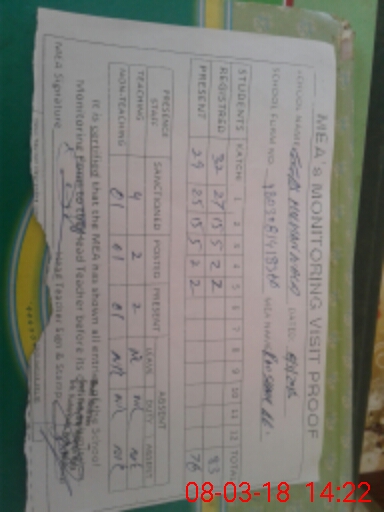 MEA's MONITORING VISIT PROOF
SCHOOL NAME DATED:
SCHOOL FORM NO. MEA NAME
STUDENTS KATCHI 1 2 3 4 5 6 7 8 9 10 11 12 TOTAL
REGISTRED 32 27 15 5 2 2 83
PRESENT 29 25 15 5 2 2 78
PRESENCE STAFF SANCTIONED POSTED PRESENT ABSENT
LEAVE DUTY ABSENT
TEACHING 4 2 2 Nil Nil Nil
NON-TEACHING 01 01 01 Nil Nil Nil
It is certified that the MEA has shown all entries of the School
Monitoring Form to the Head Teacher before its
MEA Signature Head Teacher Sign & Stamp
08-03-18 14:22